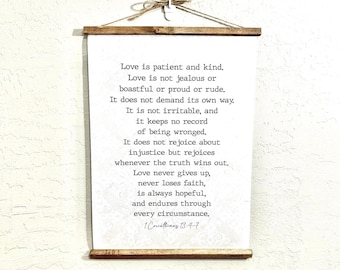 Love is patient and kind.
Love is not jealous or
boastful or proud or rude.
It does not demand its own way.
It is not irritable, and
it keeps no record
of being wronged.
It does not rejoice about
injustice but rejoices
whenever the truth wins out.
Love never gives up,
never loses faith,
is always hopeful,
and endures through
every circumstance.
1 Corinthians 13:4-7